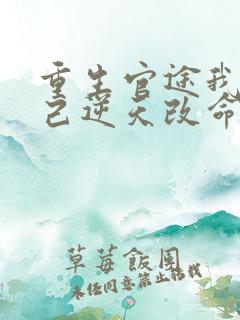 重生官途我
己逆天改命
草莓飯團
未经同意禁止转载